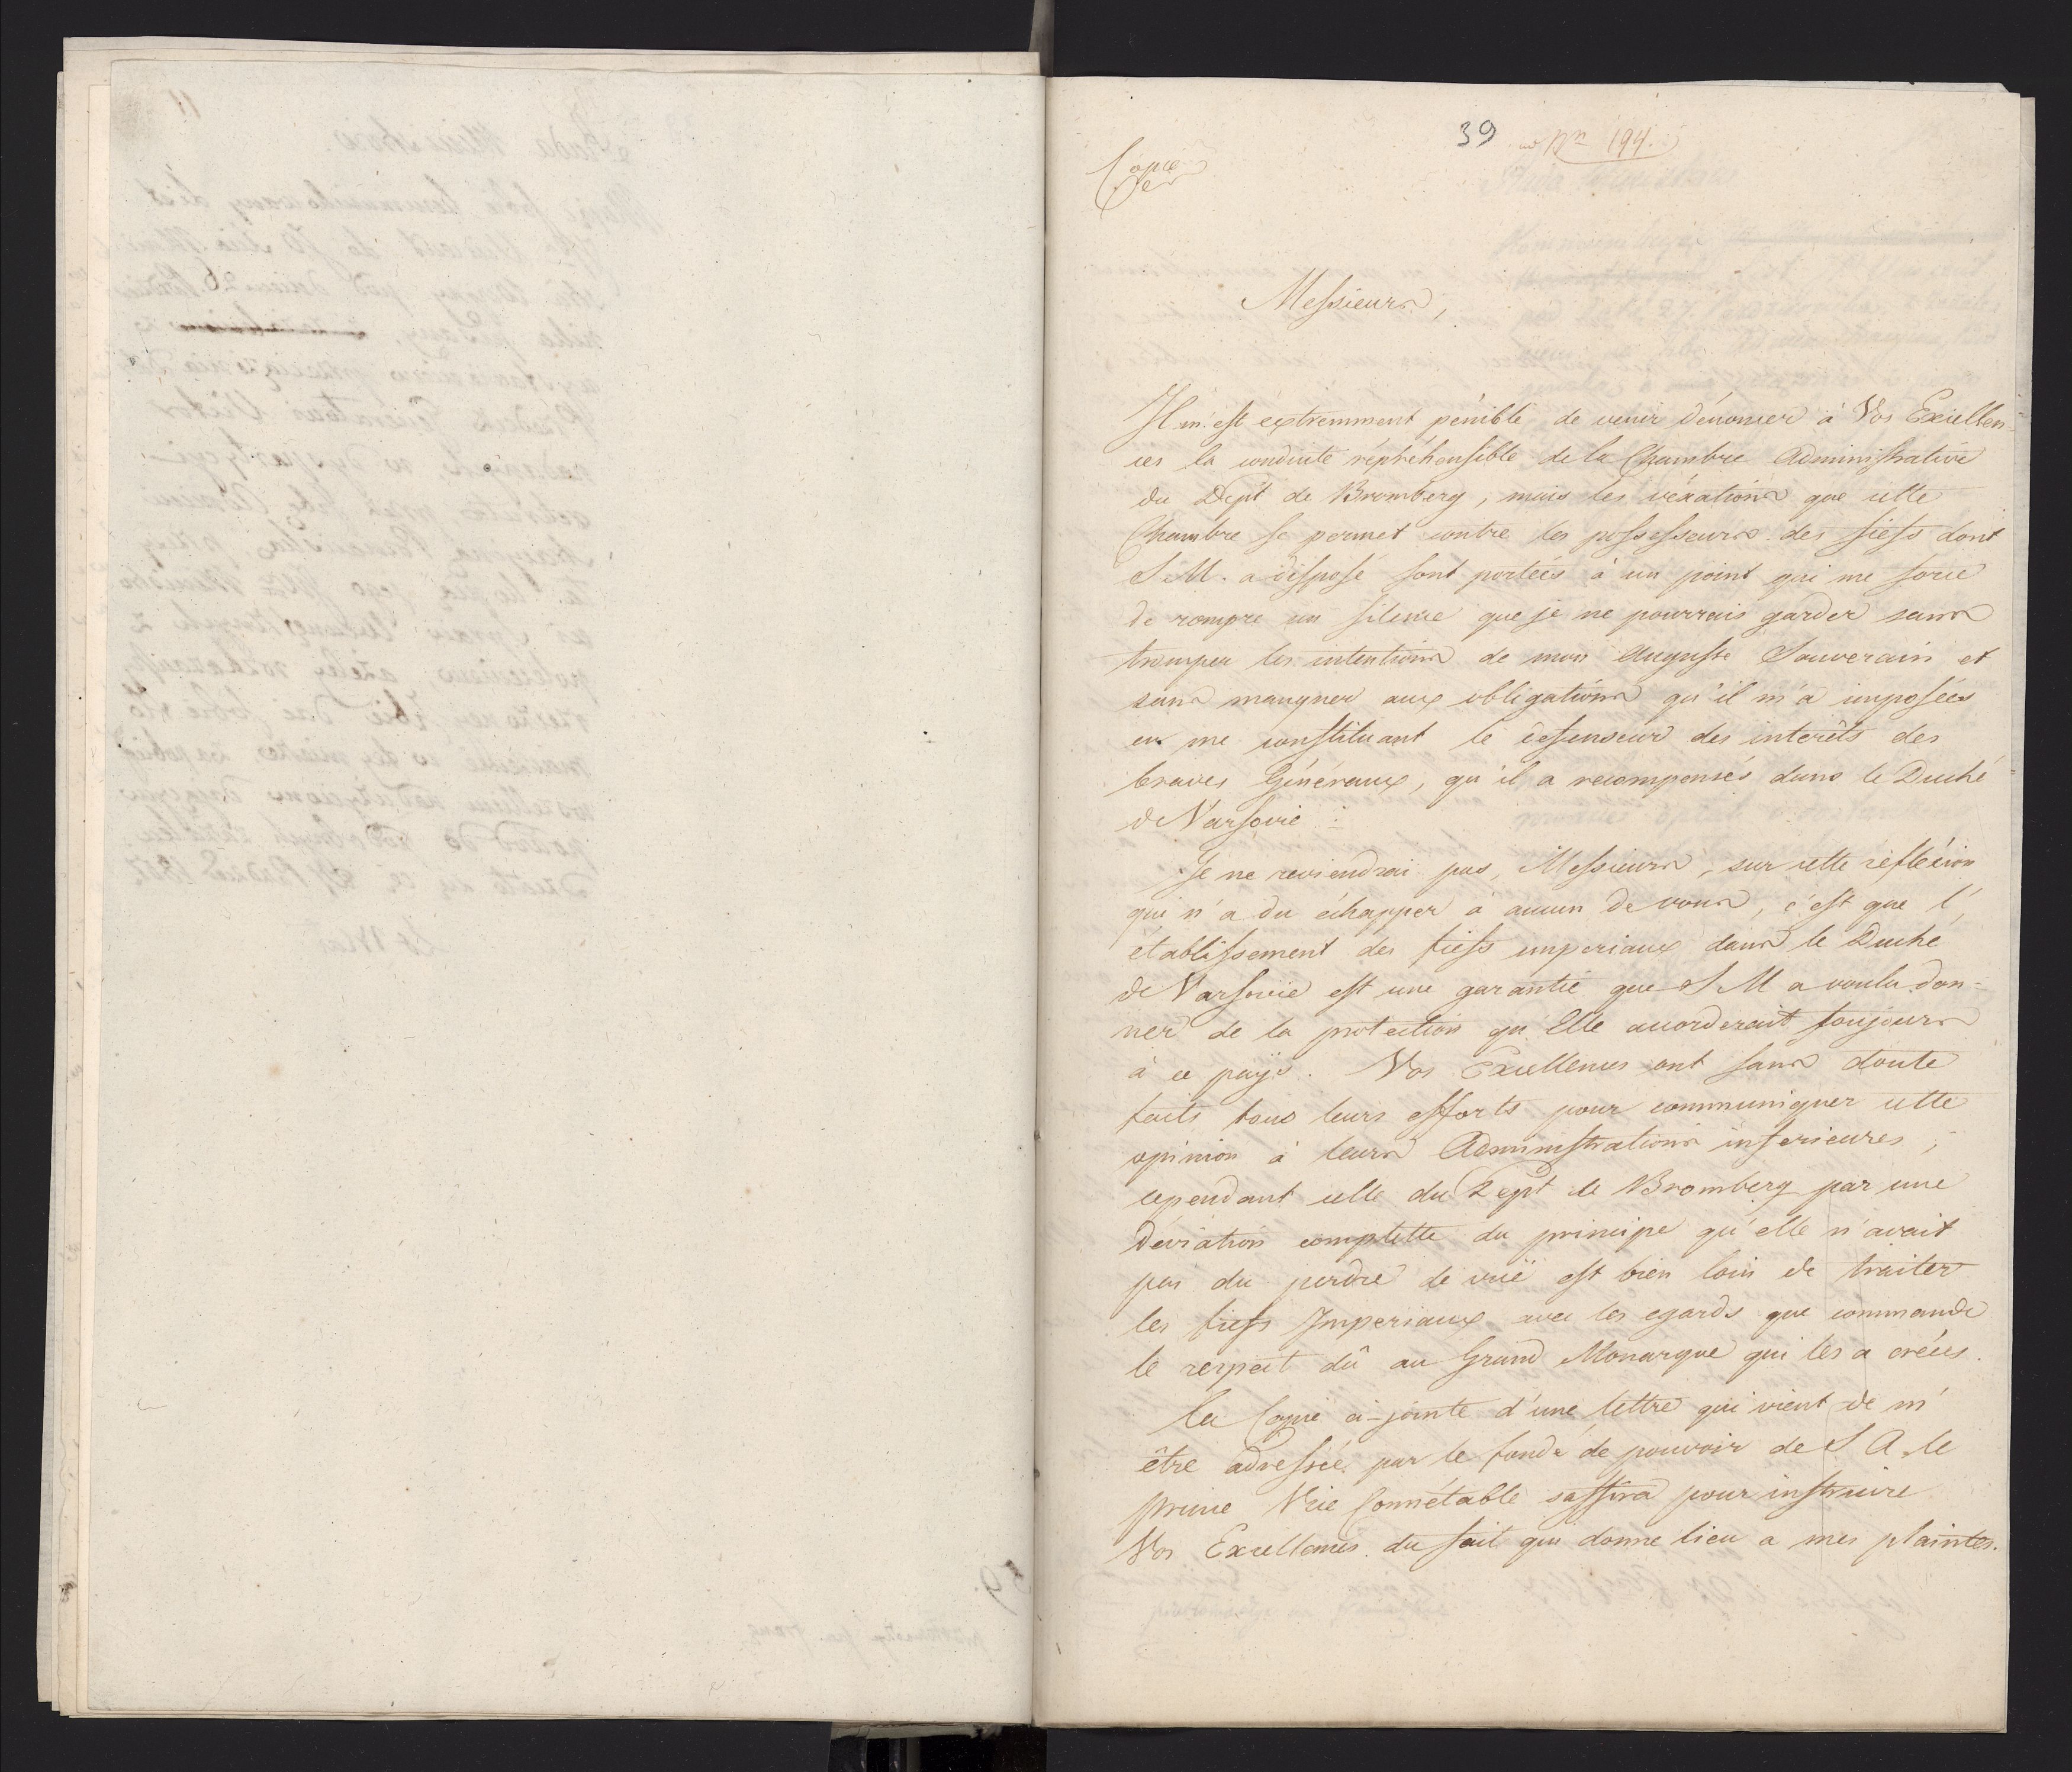 39 ad Nrn 194.
Copie
Messieurs,
Il m'est extremment pénible de venir dénoncer à Vos Excellen-
ces la conduite répréhensible de la Chambre Administrative
du Dept de Bromberg, mais les véxations que cette
Chambre se permet contre les possesseurs des fiefs dont
S. M. a disposé sont portées à un point qui me force
de rompre un silence que je ne pourrais garder sans
tromper les intentions de mon Auguste Souverain et
sans manquer aux obligations qu'il m'a imposées
en me constituant le défenseur des intérêts des
braves Généraux, qu'il a recompensés dans le Duché
de Varsovie.
Je ne reviendrai pas, Messieurs, sur cette réfléxion
qui n'a du échapper à aucun de vous, c'est que l'
établissement des fiefs imperiaux dans le Duché
de Varsovie est une garantie que S M a voulu don-
ner de la protection qu'Elle accorderait toujours
à ce pays. Vos Excellences ont sans doute
faits tous leurs efforts pour communiquer cette
opinion à leurs Administrations inferieures;
cependant celle du Dept de Bromberg par une
déviation complette du principe qu'elle n'avait
pas du perdre de vuë est bien loin de traiter
les fiefs Imperiaux avec les egards que commande
le respect dû au Grand Monarque qui les a créés.
La Copie ci-jointe d'une lettre qui vient de m'
être adressée par le fondé de pouvoir de S A le
prince Vice Connétable suffira pour instruire
Vos Excellences du fait qui donne lieu a mes plaintes.